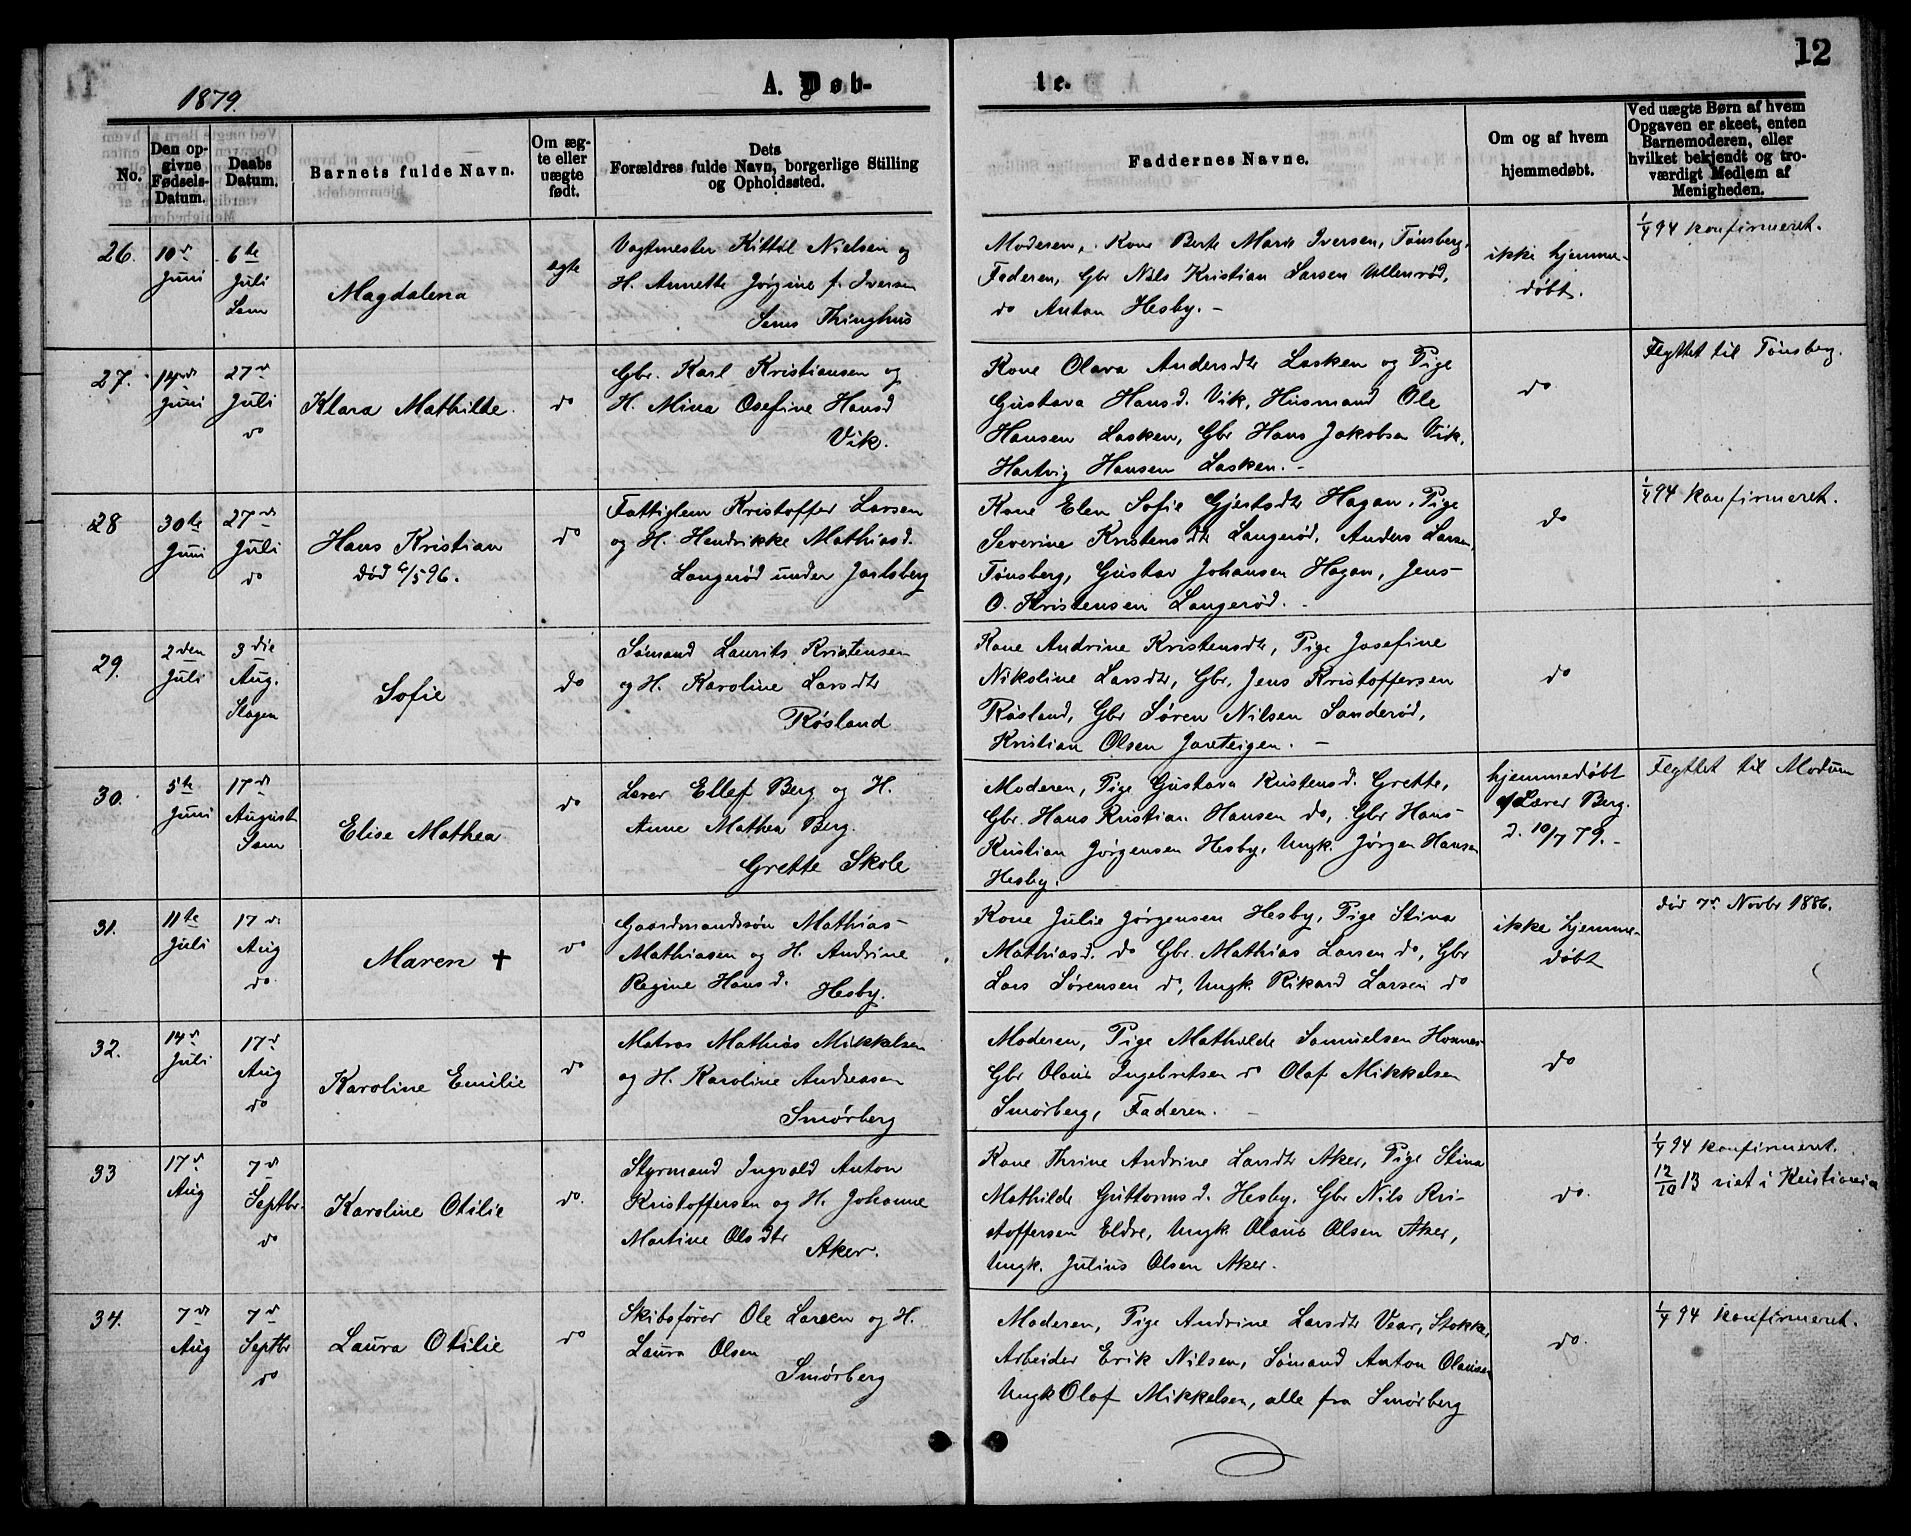 12
1879.
A. Døb-
te.
No.
Den op-
givne
Fødsels-
Datum.
Daabs
Datum.
Barnets fulde Navn.
Om æg-
te eller
uægte
født.
Dets
Forældres fulde Navn, borgerlige Stilling
og Opholdssted.
Faddernes Navne.
Om og af hvem
hjemmedøbt.
Ved uægte Børn af hvem
Opgaven er skeet, enten
Barnemoderen, eller
hvilket bekjendt og tro-
værdigt Medlem af
Menigheden.
26.
10de
Juni
6te
Juli
Sem
Magdalena
ægte
Vagtmester Kittil Nielsen og
H. Annette Jørgine f. Iversen
Sems Thinghus
Moderen, Kone Berte Marie Iversen, Tønsberg,
Faderen, Gbr Nils Kristian Larsen Ullenrød,
do Anton Hesby. -
ikke hjemme-
døbt.
1/4 94 konfirmeret.
27.
14de
Juni
27de
Juli
do
Klara Mathilde.
do
Gbr. Karl Kristiansen og
H. Mina Osefine Hansd
Vik.
Kone Olava Andersdtr Lasken og Pige
Gustava Hansd. Vik, Husmand Ole
Hansen Lasken, Gbr Hans Jakobsen Vik,
Hartvig Hansen Lasken. -
do
Flyttet til Tønsberg.
28
30te
Juni
27de
Juli
do
Hans Kristian
død 6/5 96.
do
Fattiglem Kristoffer Larsen
og H. Hendrikke Mathiasd.
Langerød under Jarlsberg
Kone Elen Sofie Gjestsdtr Hagan, Pige
Severine Kristensdtr Langerød, Anders Larsen,
Tønsberg, Gustav Johansen Hagan, Jens
O. Kristensen Langerød. -
do
1/4 94 konfirmeret.
29.
2den
Juli
3die
Aug.
Slagen
Sofie
do
Sømand Laurits Kristensen
og H. Karoline Larsdtr
Røsland
Kone Andrine Kristensdtr, Pige Josefine
Nikoline Larsdtr, Gbr. Jens Kristoffersen
Røsland, Gbr Søren Nilsen Sanderød,
Kristian Olsen Jareteigen. -
do
30.
5te
Juni
17de
August
Sem
Elise Mathea
do
Lærer Ellef Berg og H.
Anne Mathea Berg.
Grette Skole
Moderen, Pige Gustava Kristensd. Grette,
Gbr. Hans Kristian Hansen do, Gbr Hans
Kristian Jørgensen Hesby, Ungk. Jørgen Hansen
Hesby.
hjemmedøbt
af Lærer Berg.
d. 10/7 79. -
Flyttet til Modum
31.
11te
Juli
17de
Aug
do
Maren +
do
Gaardmandssøn Mathias
Mathiasen og H. Andrine
Regine Hansd. Hesby.
Kone Julie Jørgensen Hesby, Pige Stina
Mathiasd. do Gbr. Mathias Larsen do, Gbr
Lars Sørensen do, Ungk. Rikard Larsen do
ikke hjemme-
døbt
død 7de Novbr 1886.
32.
14de
Juli
17de
Aug
do
Karoline Emilie
do
Matros Mathias Mikkelsen
og H. Karoline Andreasen
Smørberg
Moderen, Pige Mathilde Samuelsen
Gbr Olaus Ingebretsen do Olaf Mikkelsen
Smørberg, Faderen. -
do
33
17de
Aug
7de
Septbr.
do
Karoline Otilie
do.
Styrmand Ingvald Anton
Kristoffersen og H. Johanne
Martine Olsdtr Aker.
Kone Thrine Andrine Larsdtr Aker, Pige Stina
Mathilde Guttormsd. Hesby. Gbr Nils Kri-
stoffersen Eldre, Ungk Olaus Olsen Aker,
Ungk. Julius Olsen Aker.
do.
1/4 94 konfirmeret.
12/10 13 viet i Kristiania
34.
7de
Aug
7de
Septbr
do
Laura Otilie
do
Skibsfører Ole Larsen og H.
Laura Olsen
Smørberg
Moderen, Pige Andrine Larsdtr Vear, Stokke,
Arbeider Erik Nilsen, Sømand Anton Olausen
Ungk Olof Mikkelsen, alle fra Smørberg
do.
1/4 94 konfirmeret.